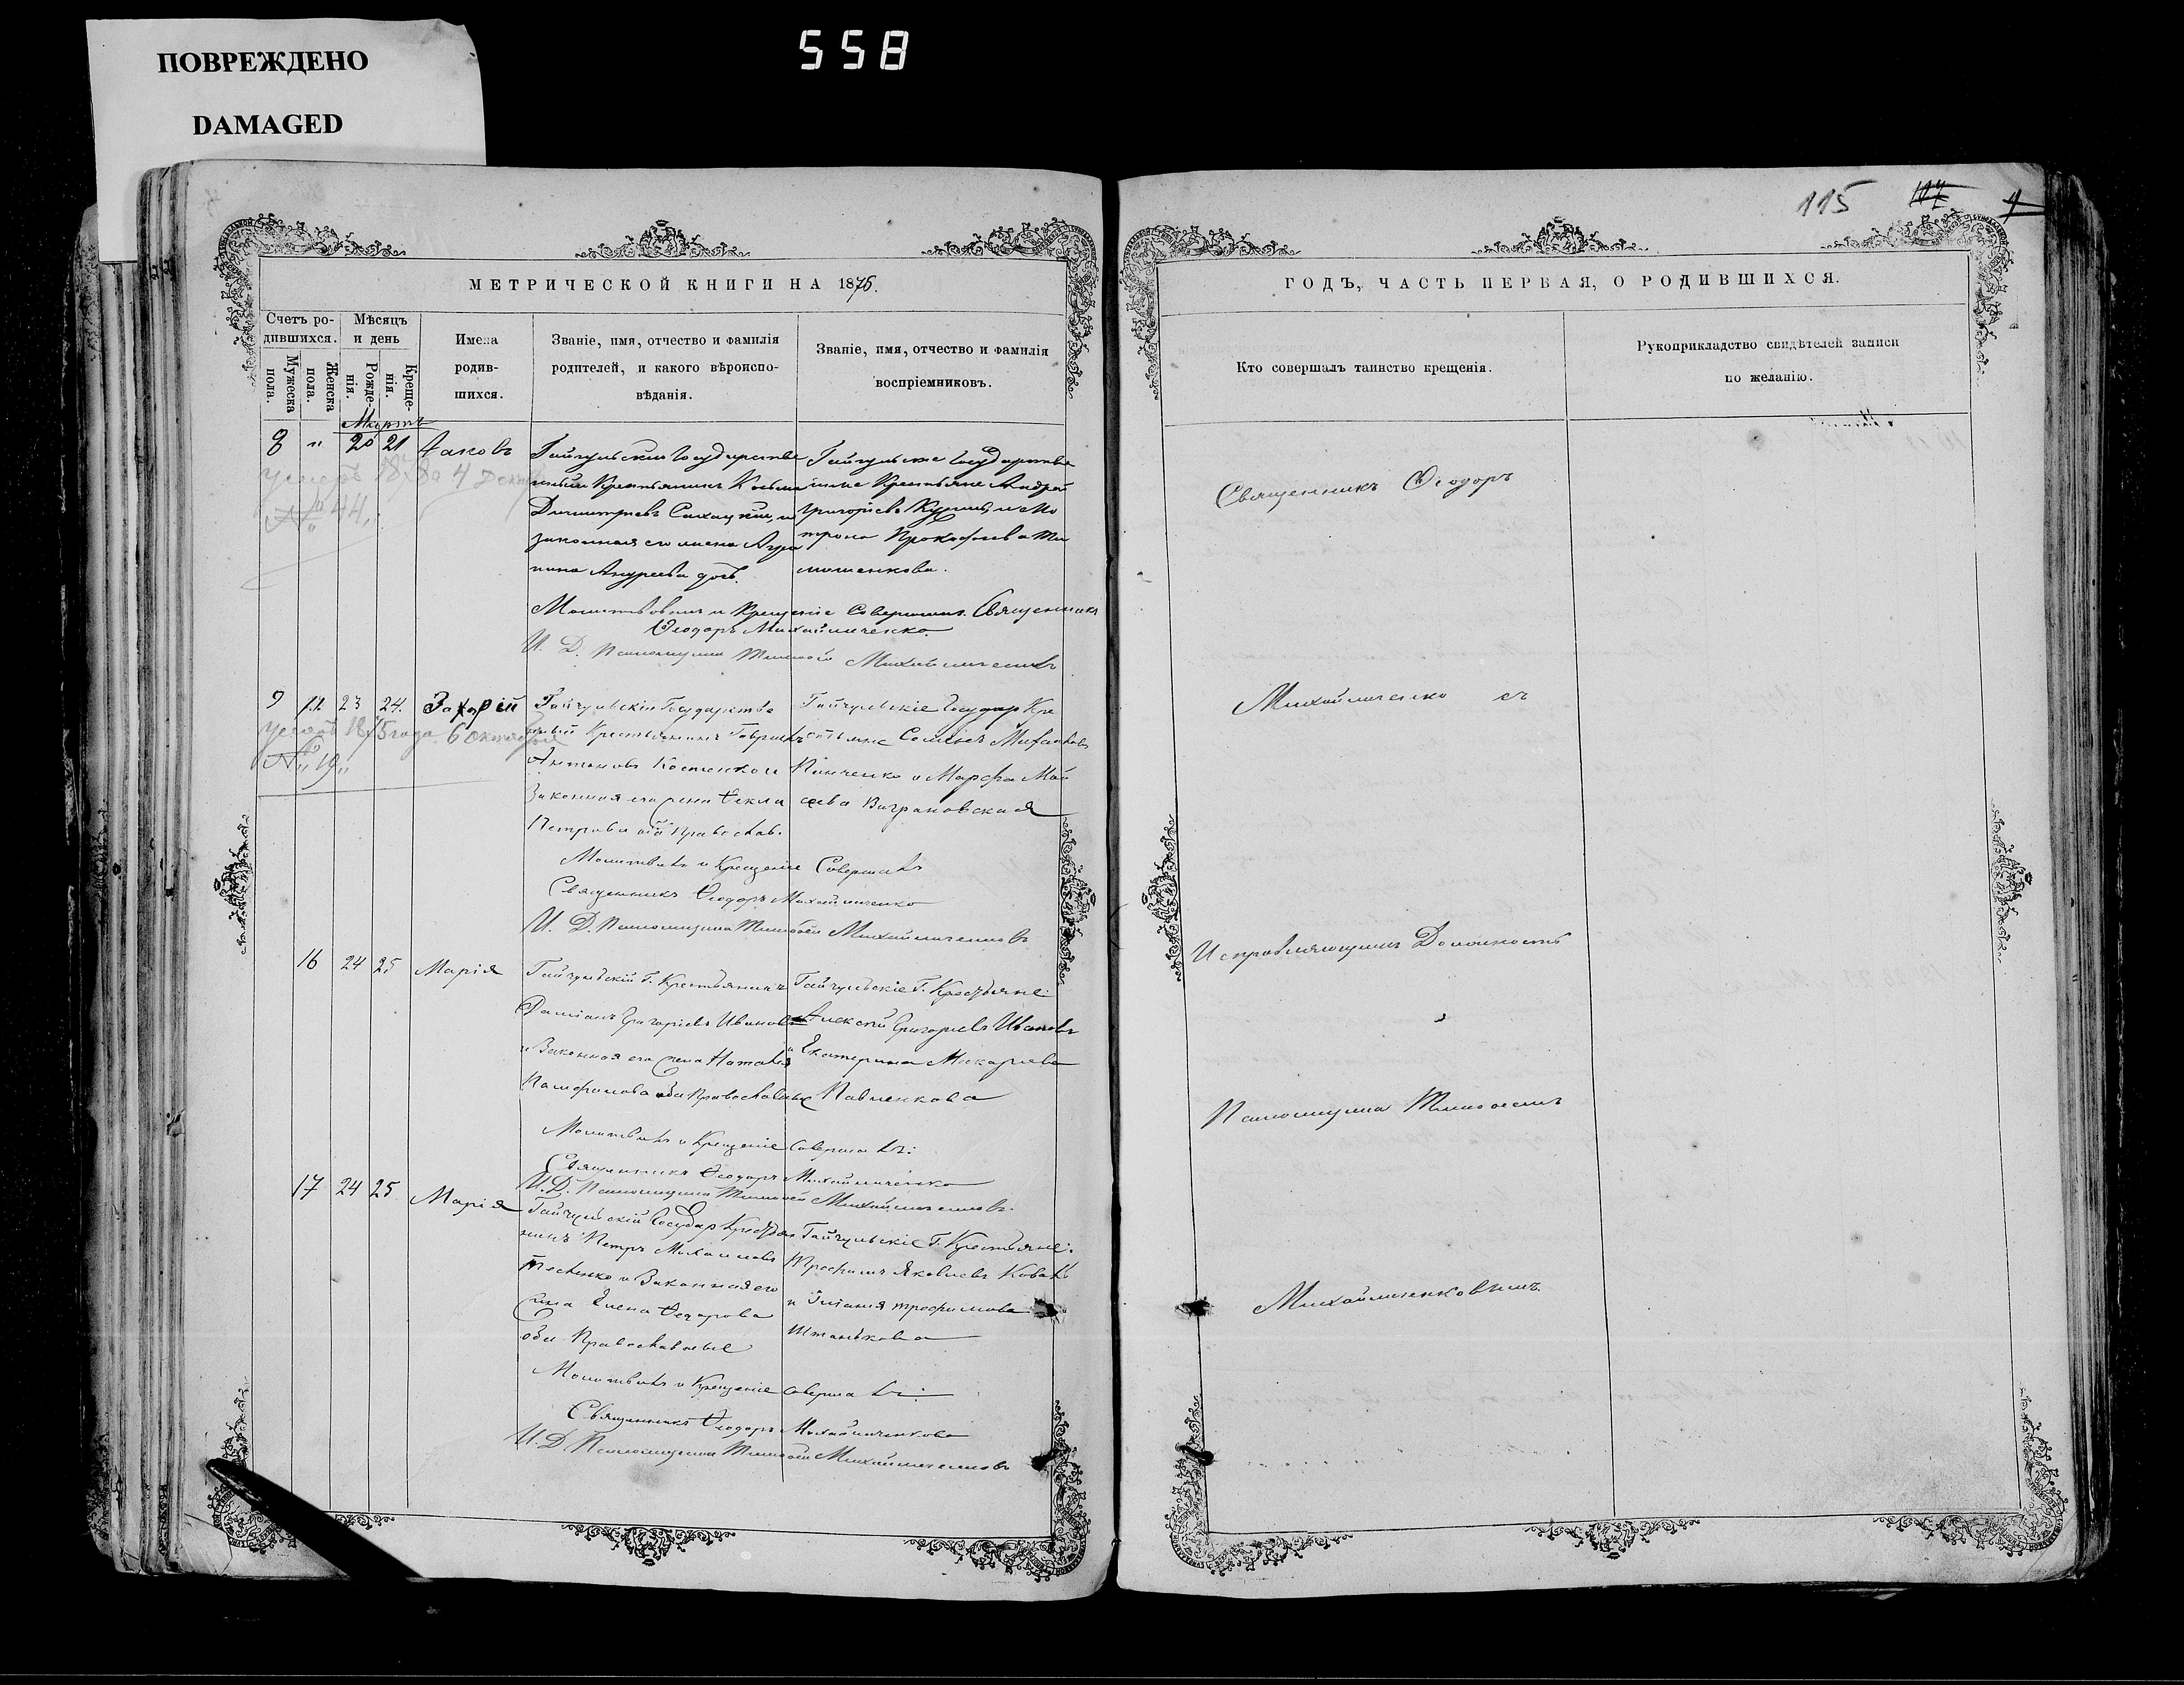 ПОВРЕЖДЕНО
DAMAGED
558
115
МЕТРИЧЕСКОЙ КНИГИ НА 1875.
Счетъ ро-
дившихся.
Мужеска пола.
Женска пола.
Мѣсяцъ
и день
Рожде-
нія.
Креще-
нія.
Имена
родив-
шихся.
Званіе, имя, отчество и фамилія
родителей, и какого вѣроиспо-
вѣданія.
Званіе, имя, отчество и фамилія
воспріемниковъ.
Мартъ
8 " 20 21 Іаковъ
умеръ 4
№ 44
Гайчульскій Государстве
нный Крестьянинъ Косьма
Димитріевъ и
законная его жена Агри
пина Андреева
Гайчульскіе Государстве
нные Крестьяне Андрей
Григоріевъ и Мо
трона Прокофіева Ти
мошенкова.
Молитвовалъ и Крещеніе Совершилъ Священникъ
Ѳеодоръ Михайличенко
И. Д. Псаломщика Тимофей Михайличенковъ
9 23 24. Захарій
умеръ 1875 года 6 октября
№ 19
Гайчульскій Государстве
нный Крестьянинъ Гавріилъ
Антоновъ Костенко и
Законная его жена Ѳекла
Петрова оба Православ.
Гайчульскіе Государ Кре
стьяне Семенъ
Панченко и Марфа Мои
сееваВаграновская
Молитвилъ и Крещеніе Совершалъ
Священникъ Ѳеодоръ Михайличенко
И. Д. Псаломщика Тимофей Михайличенковъ
16 24 25 Марія
Гайчульскій Г. Крестьянинъ
Даміанъ Григоріевъ Ивановъ
и Законная его жена Наталія
Памфилова оба Православные
Гайчульскіе Г. Крестьяне:
Алексій Григоріевъ Ивановъ
и Екатерина Макаріева
Павленкова
Молитвилъ и Крещеніе совершалъ:
Священникъ Ѳеодоръ Михайличенко
И. Д. Псаломщика Тимофей Михайличенковъ.
17 24 25 Марія
Гайчульскій Государ Крестья
нинъ Петръ Михаиловъ
и Законная его
жина Елена Ѳедорова
оба Православные
Гайчульскіе Г. Крестьяне:
Трофимъ Яковлевъ Коваль
и трофимова
Штанькова
Молитвилъ и Крещеніе совершалъ:
Священникъ Ѳеодоръ Михайличенково
И. Д. Псаломщика Тимофей Михайличенковъ
ГОДЪ, ЧАСТЬ ПЕРВАЯ, О РОДИВШИХСЯ.
Кто совершалъ таинство крещенія.
Рукоприкладство свидѣтелей записи
по желанію.
Священникъ Ѳеодоръ
Михайличенко съ
Исправляющимъ Должность
Псаломщика Тимофеемъ
Михайличенковымъ.